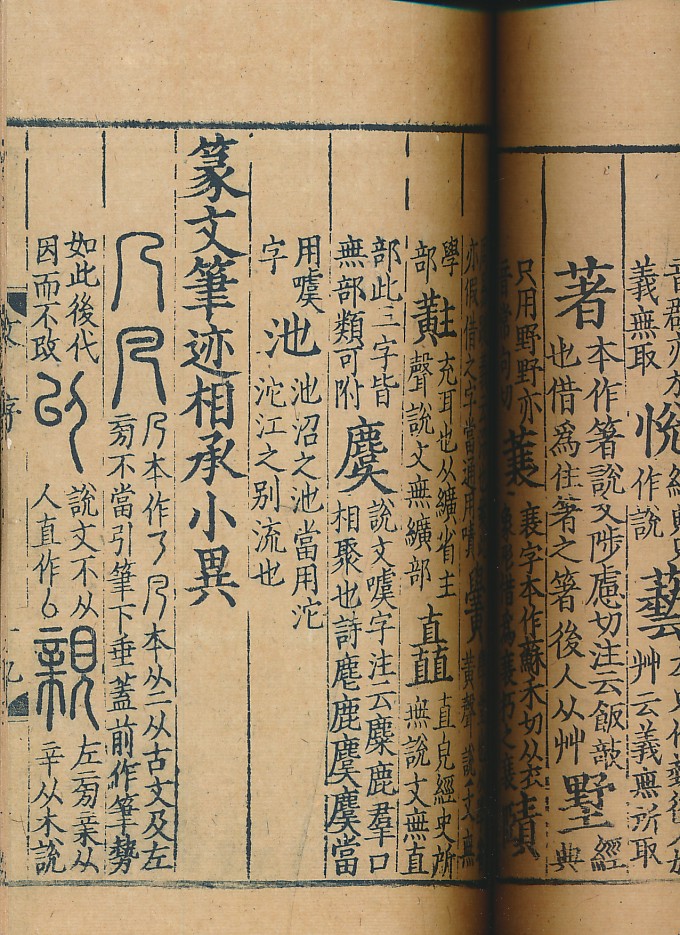 義無取
悅
作說
藝
艸云義無所取
著
本作箸說文陟慮切注云飯敧
也借爲住箸之箸後人从艸
墅
經
典
只用野野亦
蓑
蓑字本作蘇禾切从衣
象形借爲衰朽之衰
賾
亦假借之字當通用嘖
黌
黃聲說文無
學
部
黈
充耳也从纊省主
聲說文無纊部
矗
直皃經史所
無說文無直
部此三字皆
無部類可附
麌
說文噳字注云麋鹿羣口
相聚也詩麀鹿麌麌當
用噳
字
池
池沼之池當用沱
沱江之别流也
篆文筆迹相承小異
本从二从古文及左
不當引筆下垂蓋前作筆勢
如此後代
因而不改
說文不从
人直作
親
左
从
辛从木說